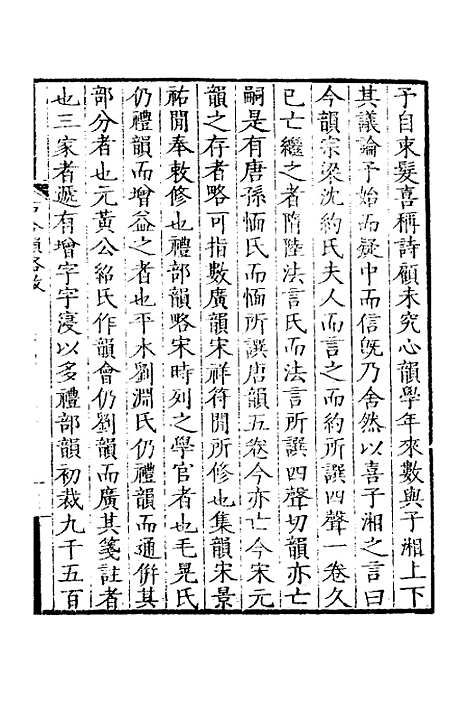 予自束髮喜稱詩顧未究心韻學年來數與子湘上下
其議論予始而疑中而信旣乃舍然以喜子湘之言曰
今韻宗梁沈約氏夫人而言之而約所譔四聲一卷久
已亡繼之者隋陸法言氏而法言所譔四聲切韻亦亡
嗣是有唐孫愐氏而愐所譔唐韻五卷今亦亡今宋元
韻之存者略可指數廣韻宋祥符閒所修也集韻宋景
祐閒奉敕修也禮部韻略宋時列之學官者也毛晃氏
仍禮韻而增益之者也平水劉淵氏仍禮韻而通倂其
部分者也元黃公紹氏作韻會仍劉韻而廣其箋註者
也三家者遞有增字字寖以多禮部韻初裁九千五百
古今韻略敘